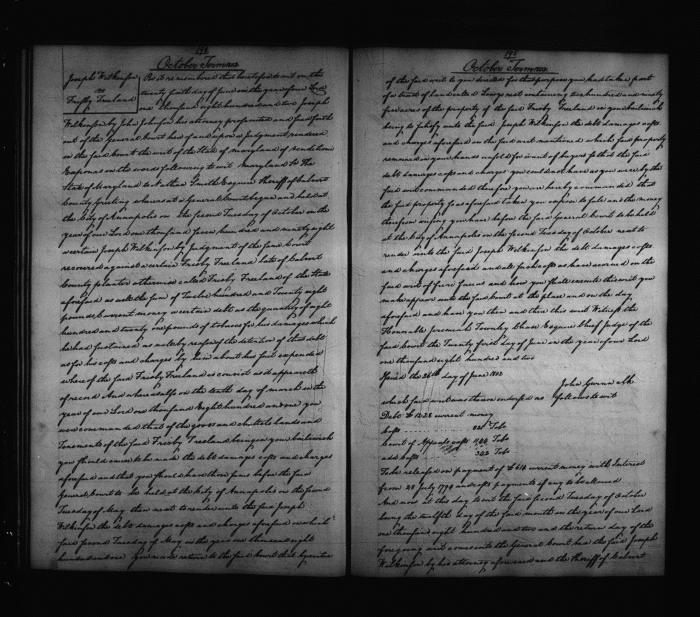 October Term 1802
Joseph Wilkinson
vs
Frisby Freeland
Be it remembered that heretofore to wit on the
twenty fourth day of June in the year of our Lord
one thousand eight hundred and two Joseph
Wilkinson by John Johnson his attorney prosecuted and sued forth
out of the General Court here upon a judgment rendered
in the said Court the writ of the State of Maryland of Venditioni
Exponas in the words following to wit Maryland Sc The
State of Maryland to Esquire Sheriff of Calvert
County Greeting whereas at a General Court begun and held at
the City of Annapolis on the second Tuesday of October in the
year of our Lord one thousand seven hundred and ninety eight
a certain Joseph Wilkinson by Judgment of the said Court
recovered against a certain Frisby Freeland late of Calvert
County planter otherwise called Frisby Freeland of the State
aforesaid as well the sum of Twelve hundred and Twenty eight
pounds Current money a certain debt as the quantity of eight
hundred and twenty one pounds of tobacco for his damages which
he had sustained as well by reason of the detention of that debt
as for his costs and charges by him about his suit expended
whereof the said Frisby Freeland is convict as it appeareth
of record And whereas also on the tenth day of March in the
year of our Lord one thousand eight hundred and one you
were commanded that of the goods and chattels lands and
Tenements of the said Frisby Freeland being in your bailiwick
you should cause to be made the debt damages costs and charges
aforesaid and that you should have those sums before the said
General Court to be held at the City of Annapolis on the second
Tuesday of May then next to render unto the said Joseph
Wilkinson the debt damages costs and charges aforesaid on which
said second Tuesday of May in the year one thousand eight
hundred and one you made return to the said Court that by virtue
October Term 1802
of the said writ to you directed for that purpose you had taken part
of a tract of land called containing two hundred and ninety
five acres of the property of the said Frisby Freeland in your bailiwick
being to satisfy unto the said Joseph Wilkinson the debt damages costs
and charges aforesaid in the said writ mentioned which said property
remained in your hands unsold for want of buyers so that the said
debt damages costs and charges you could not have as you were by the
said writ commanded therefore you are hereby commanded that
the said property so as aforesaid taken you expose to sale and the money
therefrom arising you have before the said General Court to be held
at the City of Annapolis on the second Tuesday of October next to
render unto the said Joseph Wilkinson the debt damages costs
and charges aforesaid and all such costs as have accrued on the
said writ of Fieri Facias and how you shall execute this writ you
make appear unto the said Court at the place and on the day
aforesaid and have you then and there this writ Witness the
Honorable Jeremiah Townley Chase Esquire Chief Judge of the
said Court the Twenty first day of June in the year of our Lord
one thousand eight hundred and two
Issued the 24th day of June 1802
John Gwinn clk
which said writ was thereon endorsed as follows to wit
Debt £1228 current money
Costs 821 lb Tobo
Court of Appeals costs Tobo
add costs Tobo
To be released on payment of £614 current money with Interest
from 28 July 1798 and costs payments if any to be allowed
And now at this day to wit the said second Tuesday of October
being the twelfth day of the said month in the year of our Lord
one thousand eight hundred and two and the return day of the
foregoing writ comes into the General Court here the said Joseph
Wilkinson by his attorney aforesaid and the Sheriff of Calvert